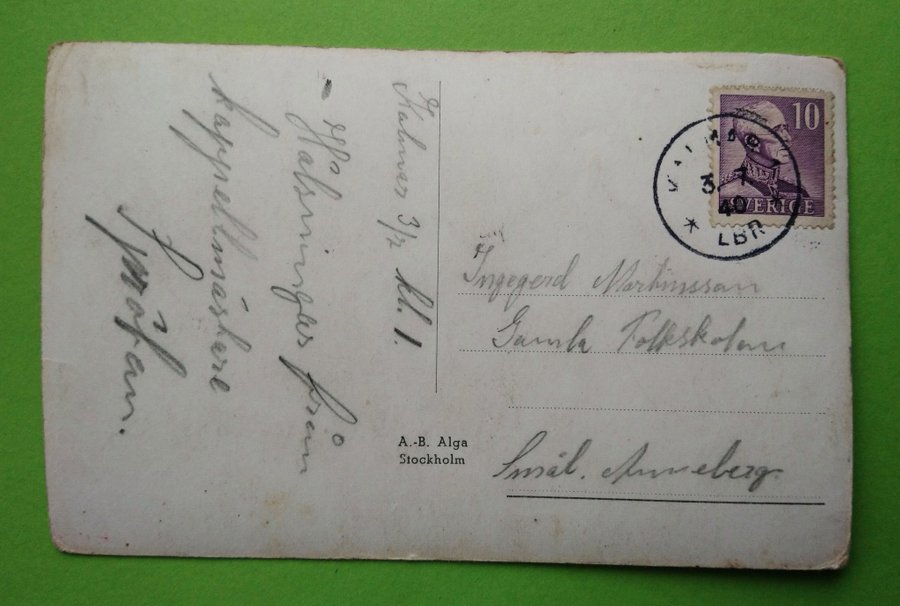 Kalmar 3/7 kl. 1.
Hälsningar från
kappellmästare
10
SVERIGE
KALMAR 1
3. 7
40
* LBR
Ingegerd Martinsson
Gamla Folkskolan
Smål. Anneberg.
A.-B. Alga
Stockholm